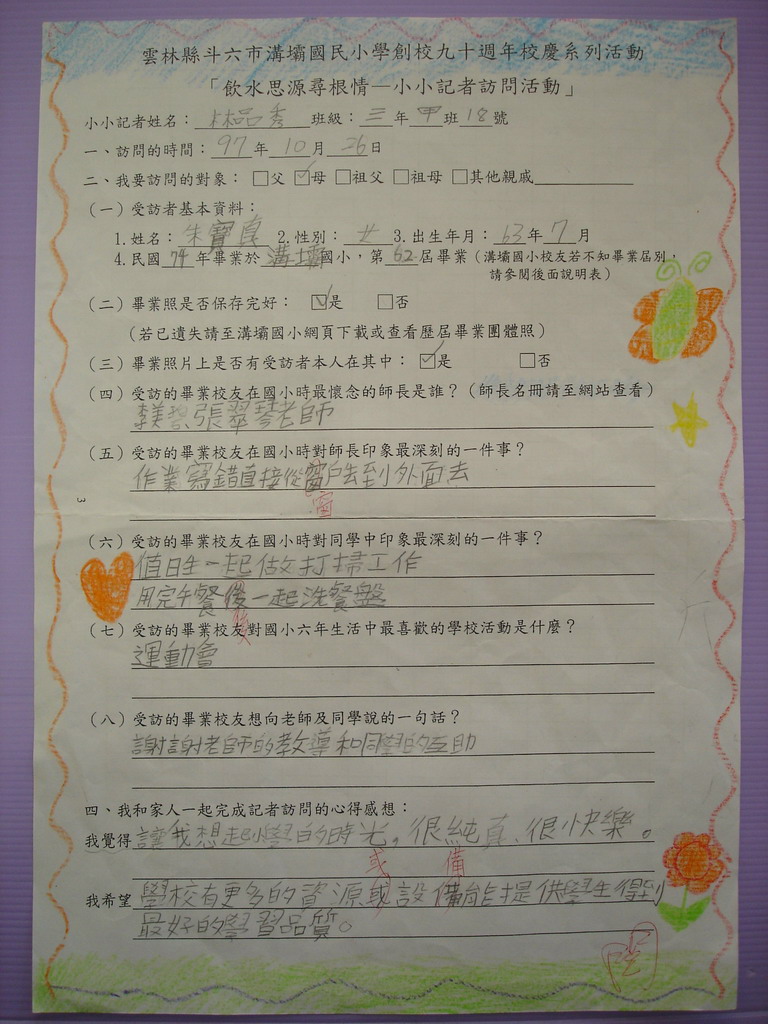 雲林縣斗六市溝壩國民小學創校九十週年校慶系列活動
「飲水思源尋根情—小小記者訪問活動」
小小記者姓名：林品秀 班級：三年甲班18號
一、訪問的時間：97年10月26日
二、我要訪問的對象：□父 ☑母 □祖父 □祖母 □其他親戚
（一）受訪者基本資料：
1.姓名：朱寶真 2.性別：女 3.出生年月：63年7月
4.民國74年畢業於溝壩國小，第62屆畢業（溝壩國小校友若不知畢業屆別，
請參閱後面說明表）
（二）畢業照是否保存完好：☑是 □否
（若已遺失請至溝壩國小網頁下載或查看歷屆畢業團體照）
（三）畢業照片上是否有受訪者本人在其中：☑是 □否
（四）受訪的畢業校友在國小時最懷念的師長是誰？（師長名冊請至網站查看）
張翠琴老師
（五）受訪的畢業校友在國小時對師長印象最深刻的一件事？
作業寫錯直接從窗戶丟到外面去
窗
3
（六）受訪的畢業校友在國小時對同學中印象最深刻的一件事？
值日生一起做打掃工作
用完午餐後一起洗餐盤
後
（七）受訪的畢業校友對國小六年生活中最喜歡的學校活動是什麼？
運動會
（八）受訪的畢業校友想向老師及同學說的一句話？
謝謝老師的教導和同學的互助
四、我和家人一起完成記者訪問的心得感想：
我覺得讓我想起小學的時光，很純真、很快樂。
或 備
我希望學校有更多的資源或設備能提供學生得到
最好的學習品質。